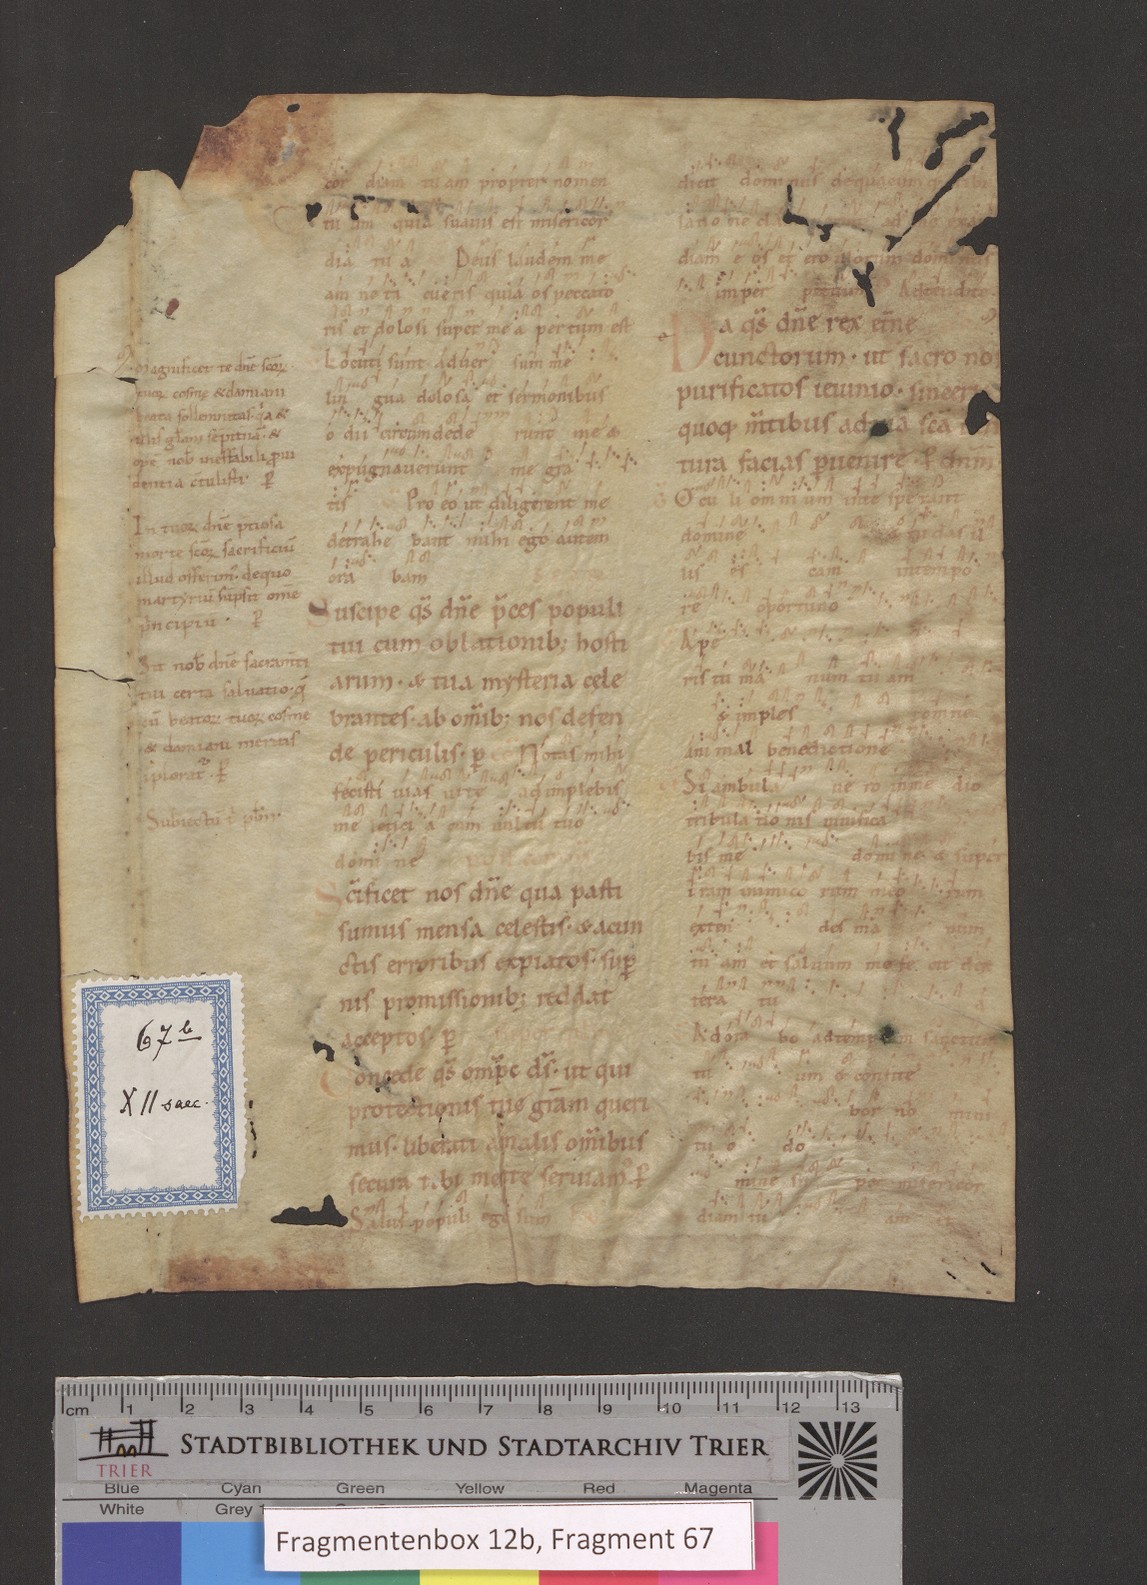 magnificet te dñe scoꝝ
tuoꝝ cosme & damiani
beata sollemnitas. q̃a &
illis glam sẽpitnã. &
ope nob̃ ineffabili pui
dentia ctulisti. P̱
In tuoꝝ dñe p̃tiosa
morte scoꝝ sacrificiũ
illud offerim⁹. de quo
martyriũ sũpsit om̃e
p̃ncipiũ. P̱
Sit nob̃ dñe sacram̃ti
tui certa saluatio. q̃
cũ beatoꝝ tuoꝝ cosme
& damiani meritis
iploratᷣ. P̱
Subiectũ t̃ pl̃m.
67 b
XII saec.
cor diam tu am propter nomen
tu um quia suauis est misericor
dia tu a Deus laudem me
am ne ta cueris quia os peccato
ris et dolosi super me a pertum est
Locuti sunt aduer sum me
lin gua dolosa et sermonibus
o dii circumdede runt me &
expugnauerunt me gra
tis Pro eo ut diligerent me
detrahe bant mihi ego autem
ora bam
Suscipe qs̃ dñe p̃ces populi
tui cum oblationib; hosti
arum. & tua mysteria cele
brantes. ab om̃ib; nos defen
de periculis. p̱ Notas mihi
fecisti uias uite adimplebis
me letici a cum uultu tuo
domi ne
Sc̃ificet nos dñe qua pasti
sumus mensa celestis. & a cun
ctis erroribus expiatos. sup̱
nis promissionib; reddat
acceptos. P̱
Concede qs̃ omp̃s ds̃. ut qui
protectionis tue gr̃am queri
mus. liberati a malis om̃ibus
secura tibi mente seruiam⁹. P̱
Salus populi ego sum
dicit dominus de quacum
diam e os et ero illorum dominus
imper petuum Adtendite
Da qs̃ dñe rex eter̃ne
cunctorum. ut sacro no
purificatos ieiunio. sinceris
quoq; m̃tibus ad tua sc̃a
tura facias puenire. P̱ dnm̃
Ocu li om ni um in te spe rant
domine et tu das il
lis es cam in tempo
re oportuno
Ape
ris tu ma num tu am
& imples omne
ani mal benedictione
Si ambula ue ro in me dio
tribula tio nis uiuifica
bis me domi ne & super
iram inimico rum meo rum
exten des ma num
tu am et saluum me fe cit dex
tera tu a
Adora bo ad templum sanctum
tu um & confite
bor no mini
tu o do
mine su per misericor
diam tu am
cm 1 2 3 4 5 6 7 8 9 10 11 12 13
TRIER
STADTBIBLIOTHEK UND STADTARCHIV TRIER
Blue Cyan Green Yellow Red Magenta
White Grey 1
Fragmentenbox 12b, Fragment 67